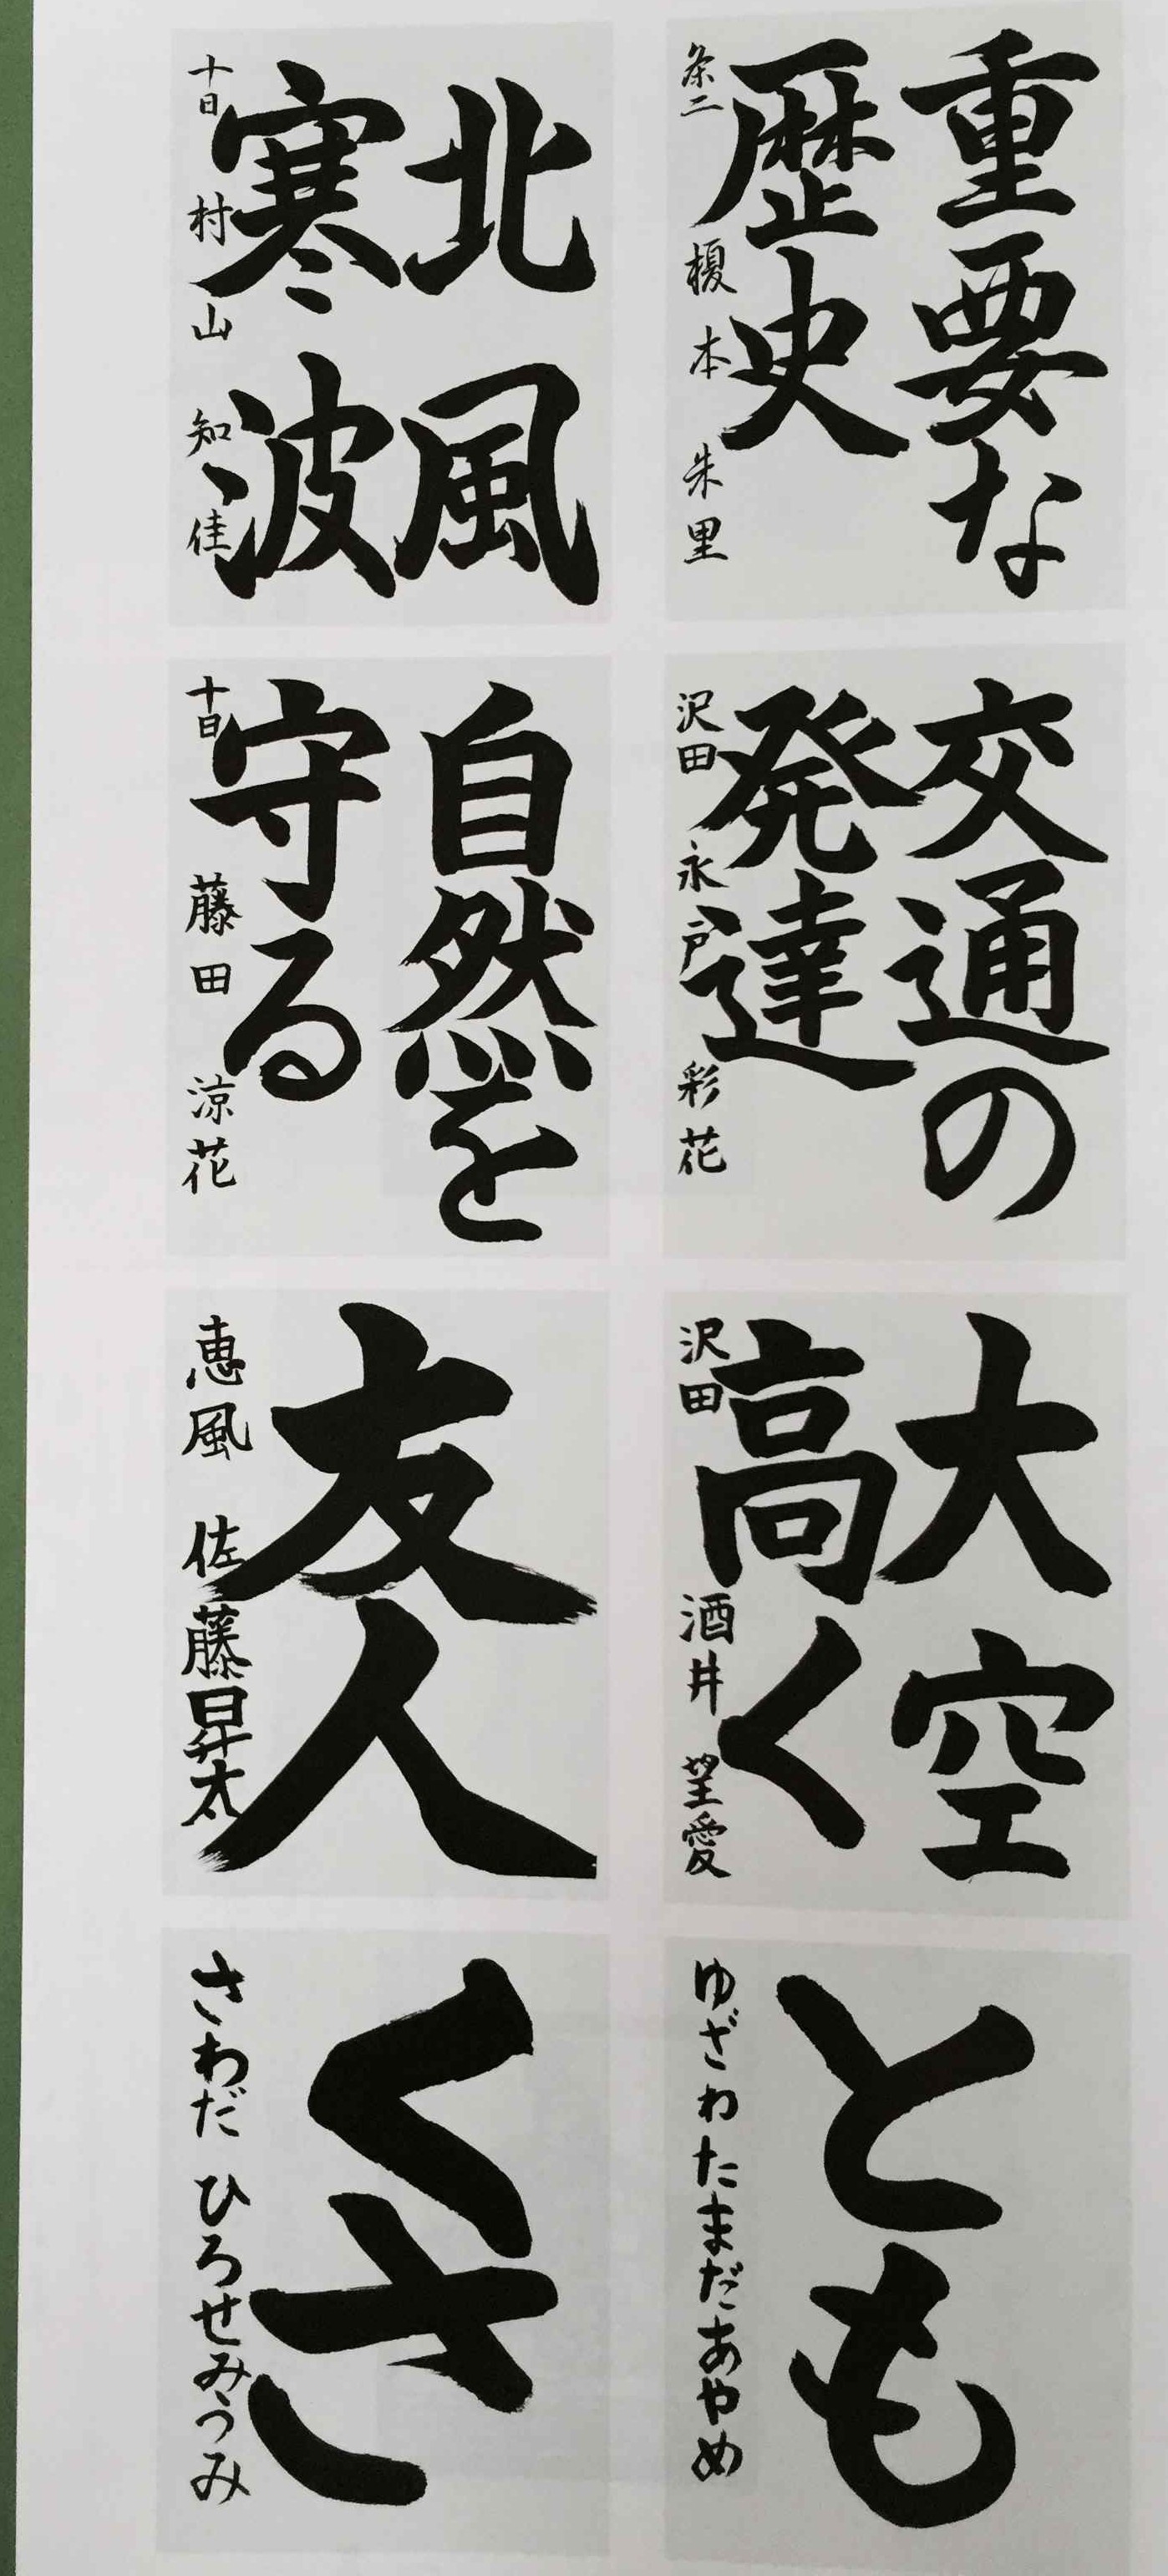 重要な
歴史
条二 榎本 朱里
北風
寒波
十日 村山 知佳
交通の
発達
沢田 永戸 彩花
自然を
守る
十日 藤田 涼花
大空
高く
沢田 酒井 望愛
友人
恵風 佐藤昇太
とも
ゆざわ たまだあやめ
くさ
さわだ ひろせみうみ